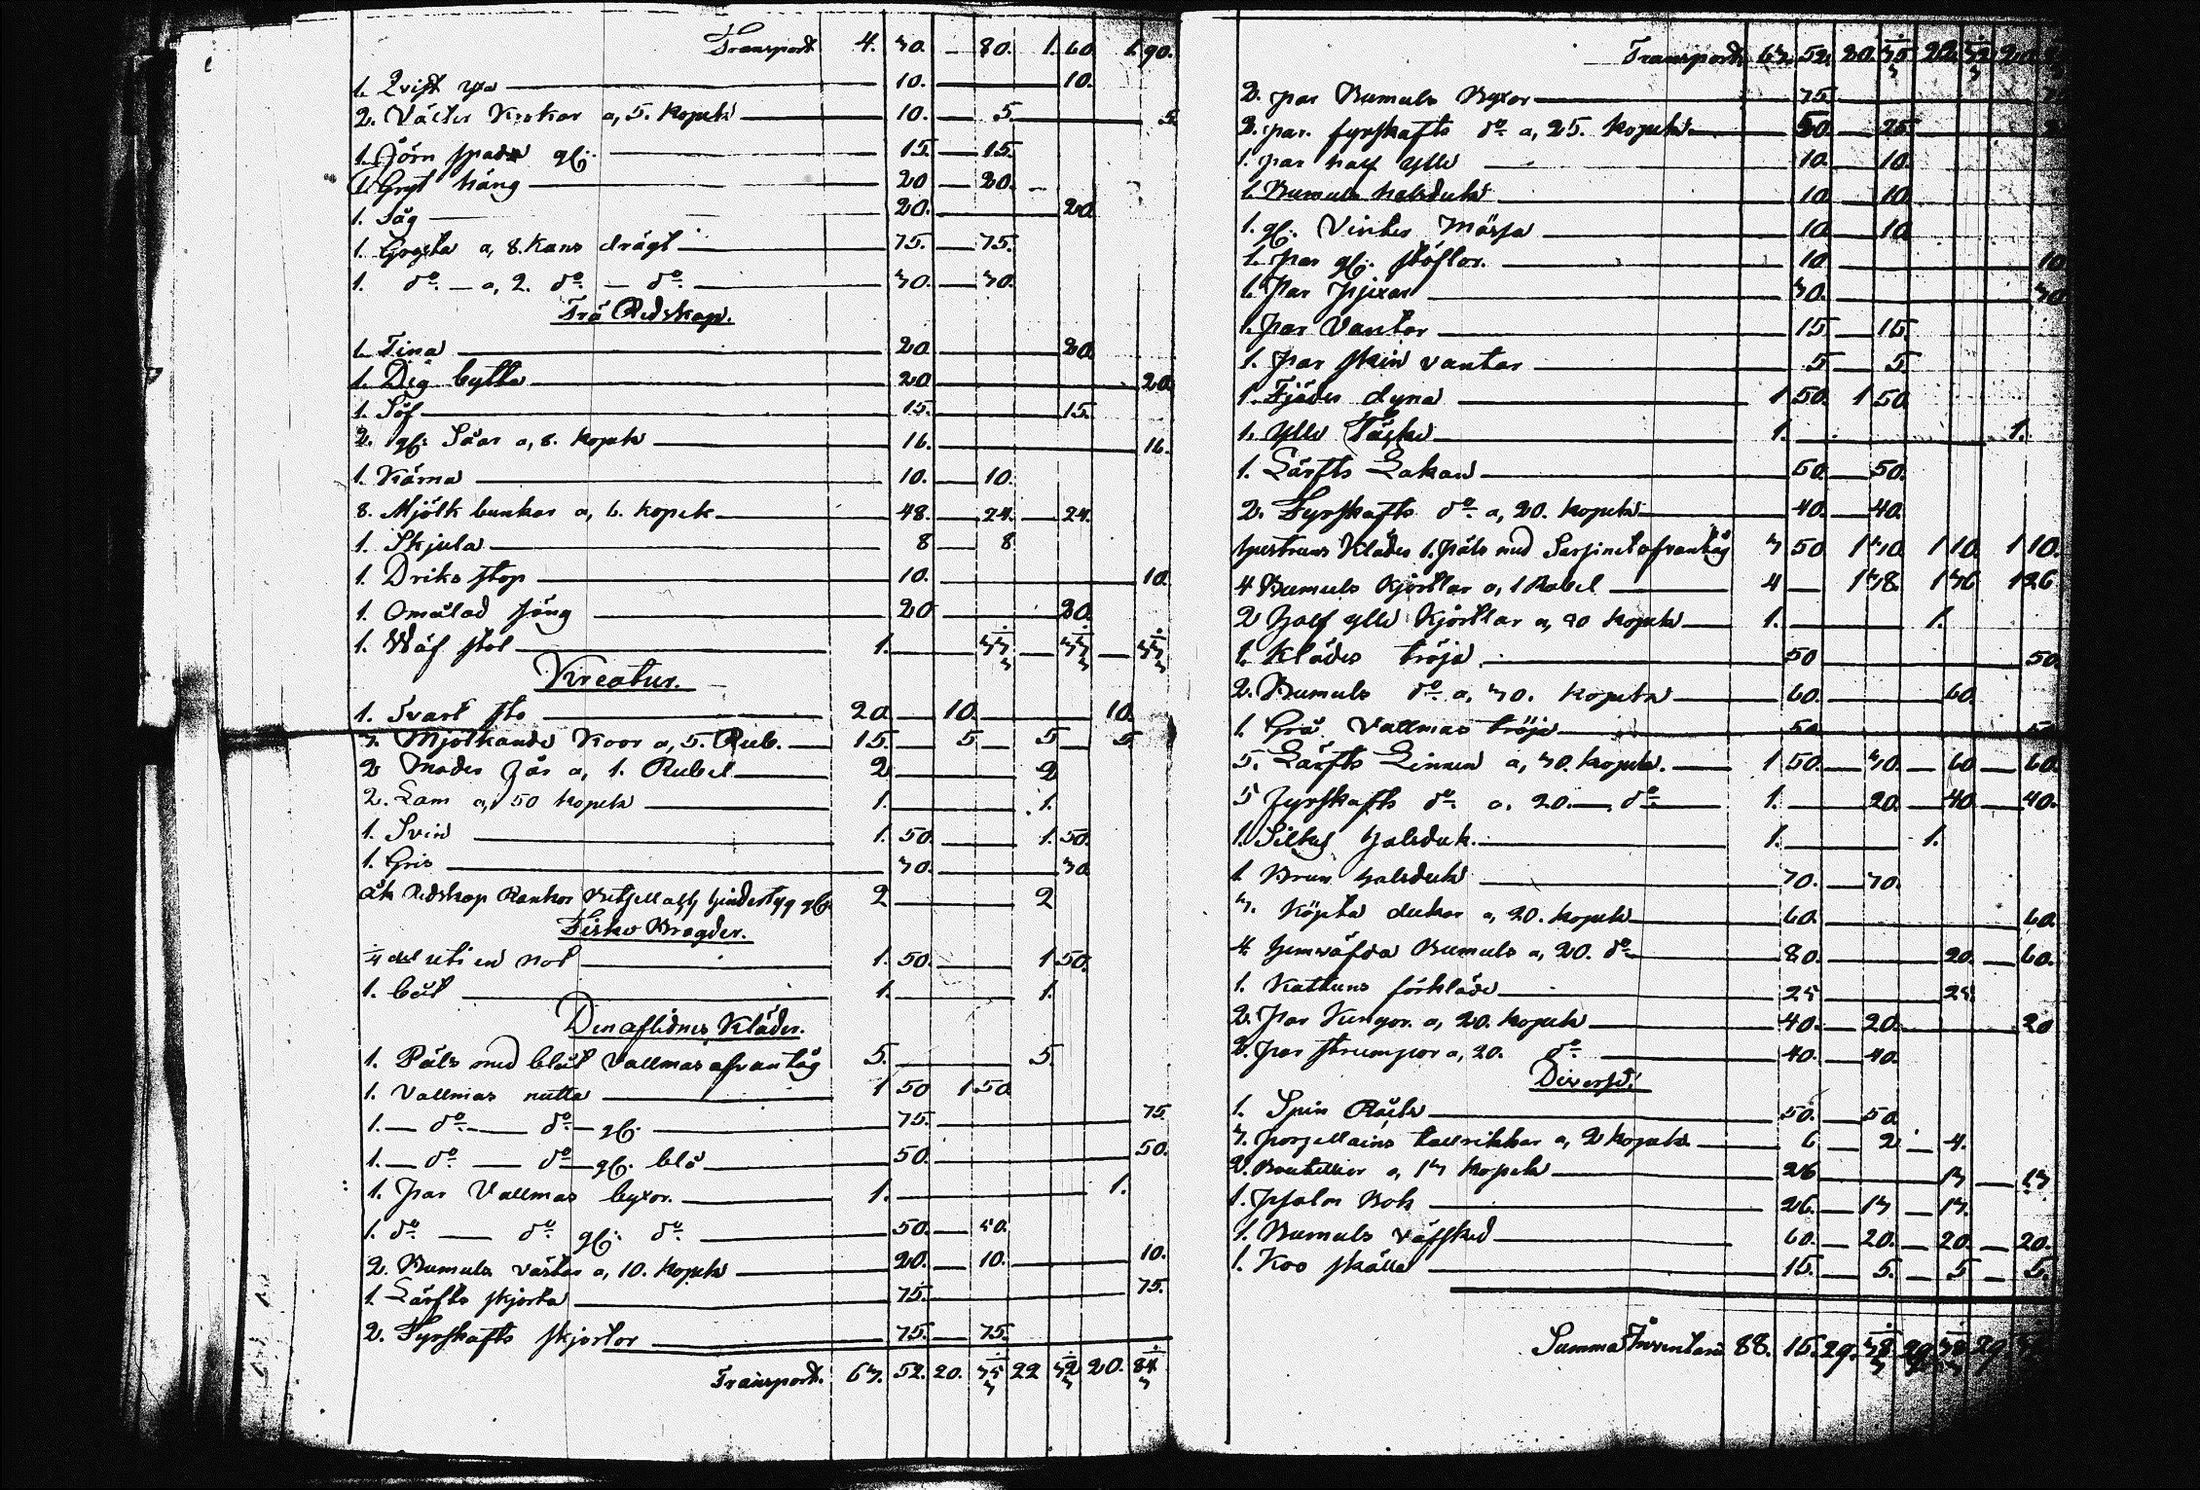 Transport 4. 30. 80. 1. 60. 1. 90.
1. Qvist yxa 10. 10.
2. Väder Krokar a, 5. kopek 10. 5. 5.
1. Jörn spade gl: 15. 15.
1. Gryt häng 20 20.
1. Såg 20. 20.
1. Gryta a, 8. Kans drägt 75. 75.
1. do a, 2. do do 30. 30.
Trä Redskap.
1. Tina 20 20.
1. Dig bytta 20 20.
1. Söf 15. 15.
2. gl: Såar a, 8. kopek 16. 16.
1. Kärna 10. 10.
8. Mjölk bunkar a, 6. kopek 48. 24. 24.
1. Skjula 8 8
1. Driks stop 10. 10.
1. Omålad säng 20 20.
1. Wäf stol 1. 33 33 33
Kreatur.
1. Svart sto 20. 10. 10.
3. Mjölkande Koor a, 5. Rub. 15. 5 5 5
2 Moder får a, 1. Rubel 2 2
2. Lam a, 50 kopek 1. 1.
1. Svin 1. 50. 1. 50.
1. Gris 30. 30
Åk Redskap Rankor Betsel allt hindestyg gl: 2 2
Fiske Bragder.
1/4 del uti en not 1. 50. 1 50.
1. båt 1. 1.
Den aflidnes Kläder.
1. Päls med blått Vallmas afvantåg 5. 5.
1. Vallmas rutta 1 50 1 50
1. do do gl: 75. 75
1. do do gl: blå 50. 50.
1. par Vallmas byxor. 1. 1.
1. do do gl: do 50. 50.
2. Bumuls västar a, 10. kopek 20. 10. 10.
1. Lärfts skjorta 75. 75.
2. Fyrskafts skjortor 75. 75.
Transport. 63. 52. 20. 35 22 32 20. 84
Transport 63. 52. 20. 35 22. 32 20.
2. par Bumuls Byxor 75
2. par. fyrskafts do a, 25. kopek 50. 25.
1. par half ylle 10. 10.
1. Bumuls halsduk 10. 10.
1. gl: Vinter Mössa 10. 10
1. par gl: stöflor. 10 10
1. Par pjexor 30. 30
1. Par Vantar 15 15
1. Par skin vantar 5 5.
1. Fjäder dyna 1 50. 1 50.
1. Ylle Täcke 1. 1.
1. Lärfts Lakan 50. 50.
2. Fyrskafts do a, 20. kopek 40. 40.
hustruns Kläder 1. päls med Sarsinet afvantåg 3 50 1 30 1 10. 1 10.
4 Bumuls Kjortlar a, 1 Rubel 4 1 38. 1 36 1 26
2 Half ylle Kjortlar a, 50 kopek 1. 1.
1. Klädes tröja 50 50.
2. Bumuls do a, 30. kopek 60. 60.
1. Grå Vallmas tröja 50 50
5. Lärfts Linnen a, 30. kopek. 1 50. 30. 60 60.
5 Fyrskafts do a, 20. do 1. 20. 40. 40.
1. Silkes halsduk. 1. 1.
1 Brun halsduk 30. 30.
3. Köpta dukar a, 20. kopek 60. 60.
4. hemväfda Bumuls a, 20. do 80. 20. 60.
1. Kattuns förkläde 25 25
2. Par Kängor. a, 20. kopek 40. 20. 20
2. par strumpor a, 20. do 40. 40.
Diverse.
1. Spin Råck 50. 50
3. porzellains tallrikkar a, 2 kopek 6 2 4.
2. Bouteiller a, 13 kopek 26 13 13
1. Psalm Bok 26. 13 13.
1. Bumuls väfsked 60. 20. 20. 20.
1. Koo skälla 15. 5. 5 5.
Summa Inventarii 88. 15. 29. 38 29